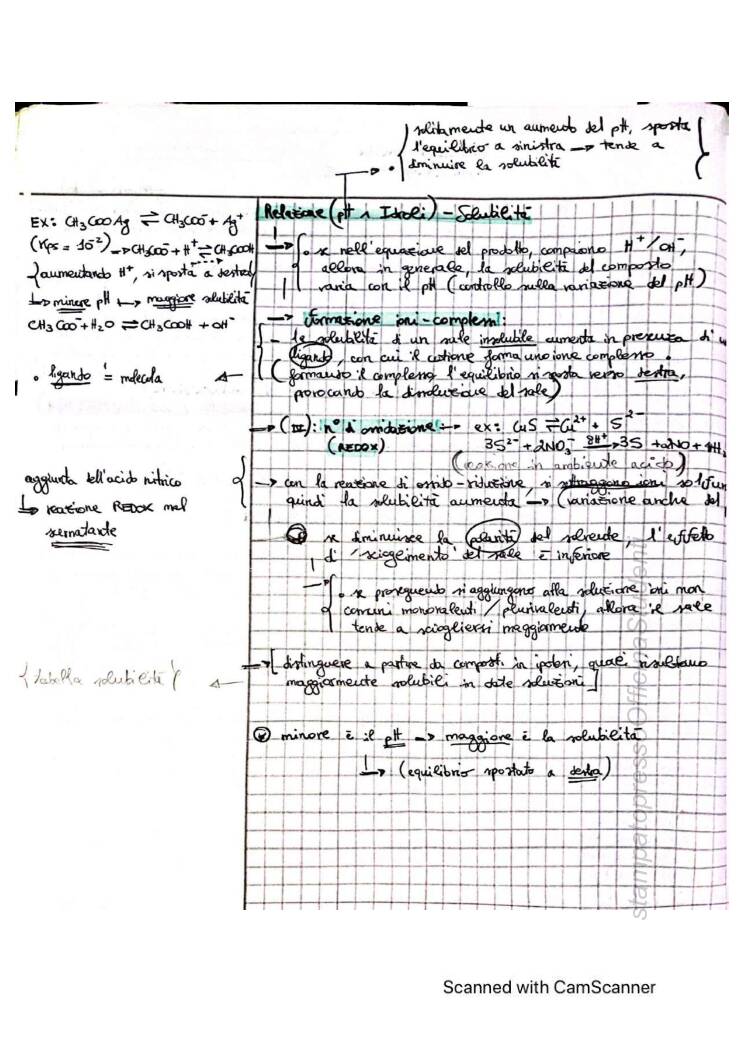 solitamente un aumento del pH, sposta
l'equilibrio a sinistra → tende a
diminuire la solubilità
Relazione (pH e Idroli) - Solubilità
• se nell'equazione del prodotto, compaiono H⁺/OH⁻,
allora in generale, la solubilità del composto
varia con il pH (controllo sulla variazione del pH)
EX: CH₃COOAg ⇌ CH₃COO⁻ + Ag⁺
(Kps = 10⁻²) → CH₃COO⁻ + H⁺ ⇌ CH₃COOH
{aumentando H⁺, si sposta a destra}
↳ minore pH ↦ maggiore solubilità
CH₃COO⁻ + H₂O ⇌ CH₃COOH + OH⁻
→ formazione ioni-complessi:
- la solubilità di un sale insolubile aumenta in presenza di
ligando, con cui il catione forma uno ione complesso.
(formando il complesso, l'equilibrio si sposta verso destra,
provocando la dissoluzione del sale)
• ligando = molecola
→ (III): n° d'ossidazione: → ex: CuS ⇌ Cu²⁺ + S²⁻
(REDOX) 3S²⁻ + 2NO₃⁻ 8H⁺→ 3S + 2NO + 4H₂
(reazione in ambiente acido)
aggiunta dell'acido nitrico
↳ reazione REDOX nel
surnatante
→ con la reazione di ossido-riduzione, si sottraggono ioni
quindi la solubilità aumenta → (variazione anche del
se diminuisce la polarità del solvente, l'effetto
di "sciogimento" del sale è inferiore
• se proseguendo si aggiungono alla soluzione ioni non
comuni monovalenti/plurivalenti, allora il sale
tende a sciogliersi maggiormente
→ [distinguere a partire da composti in ipotesi, quali risultano
maggiormente solubili in date soluzioni]
{tabella solubilità}
minore è il pH → maggiore è la solubilità
↳ (equilibrio spostato a destra)
stampatopressoOfficinaStudenti
Scanned with CamScanner